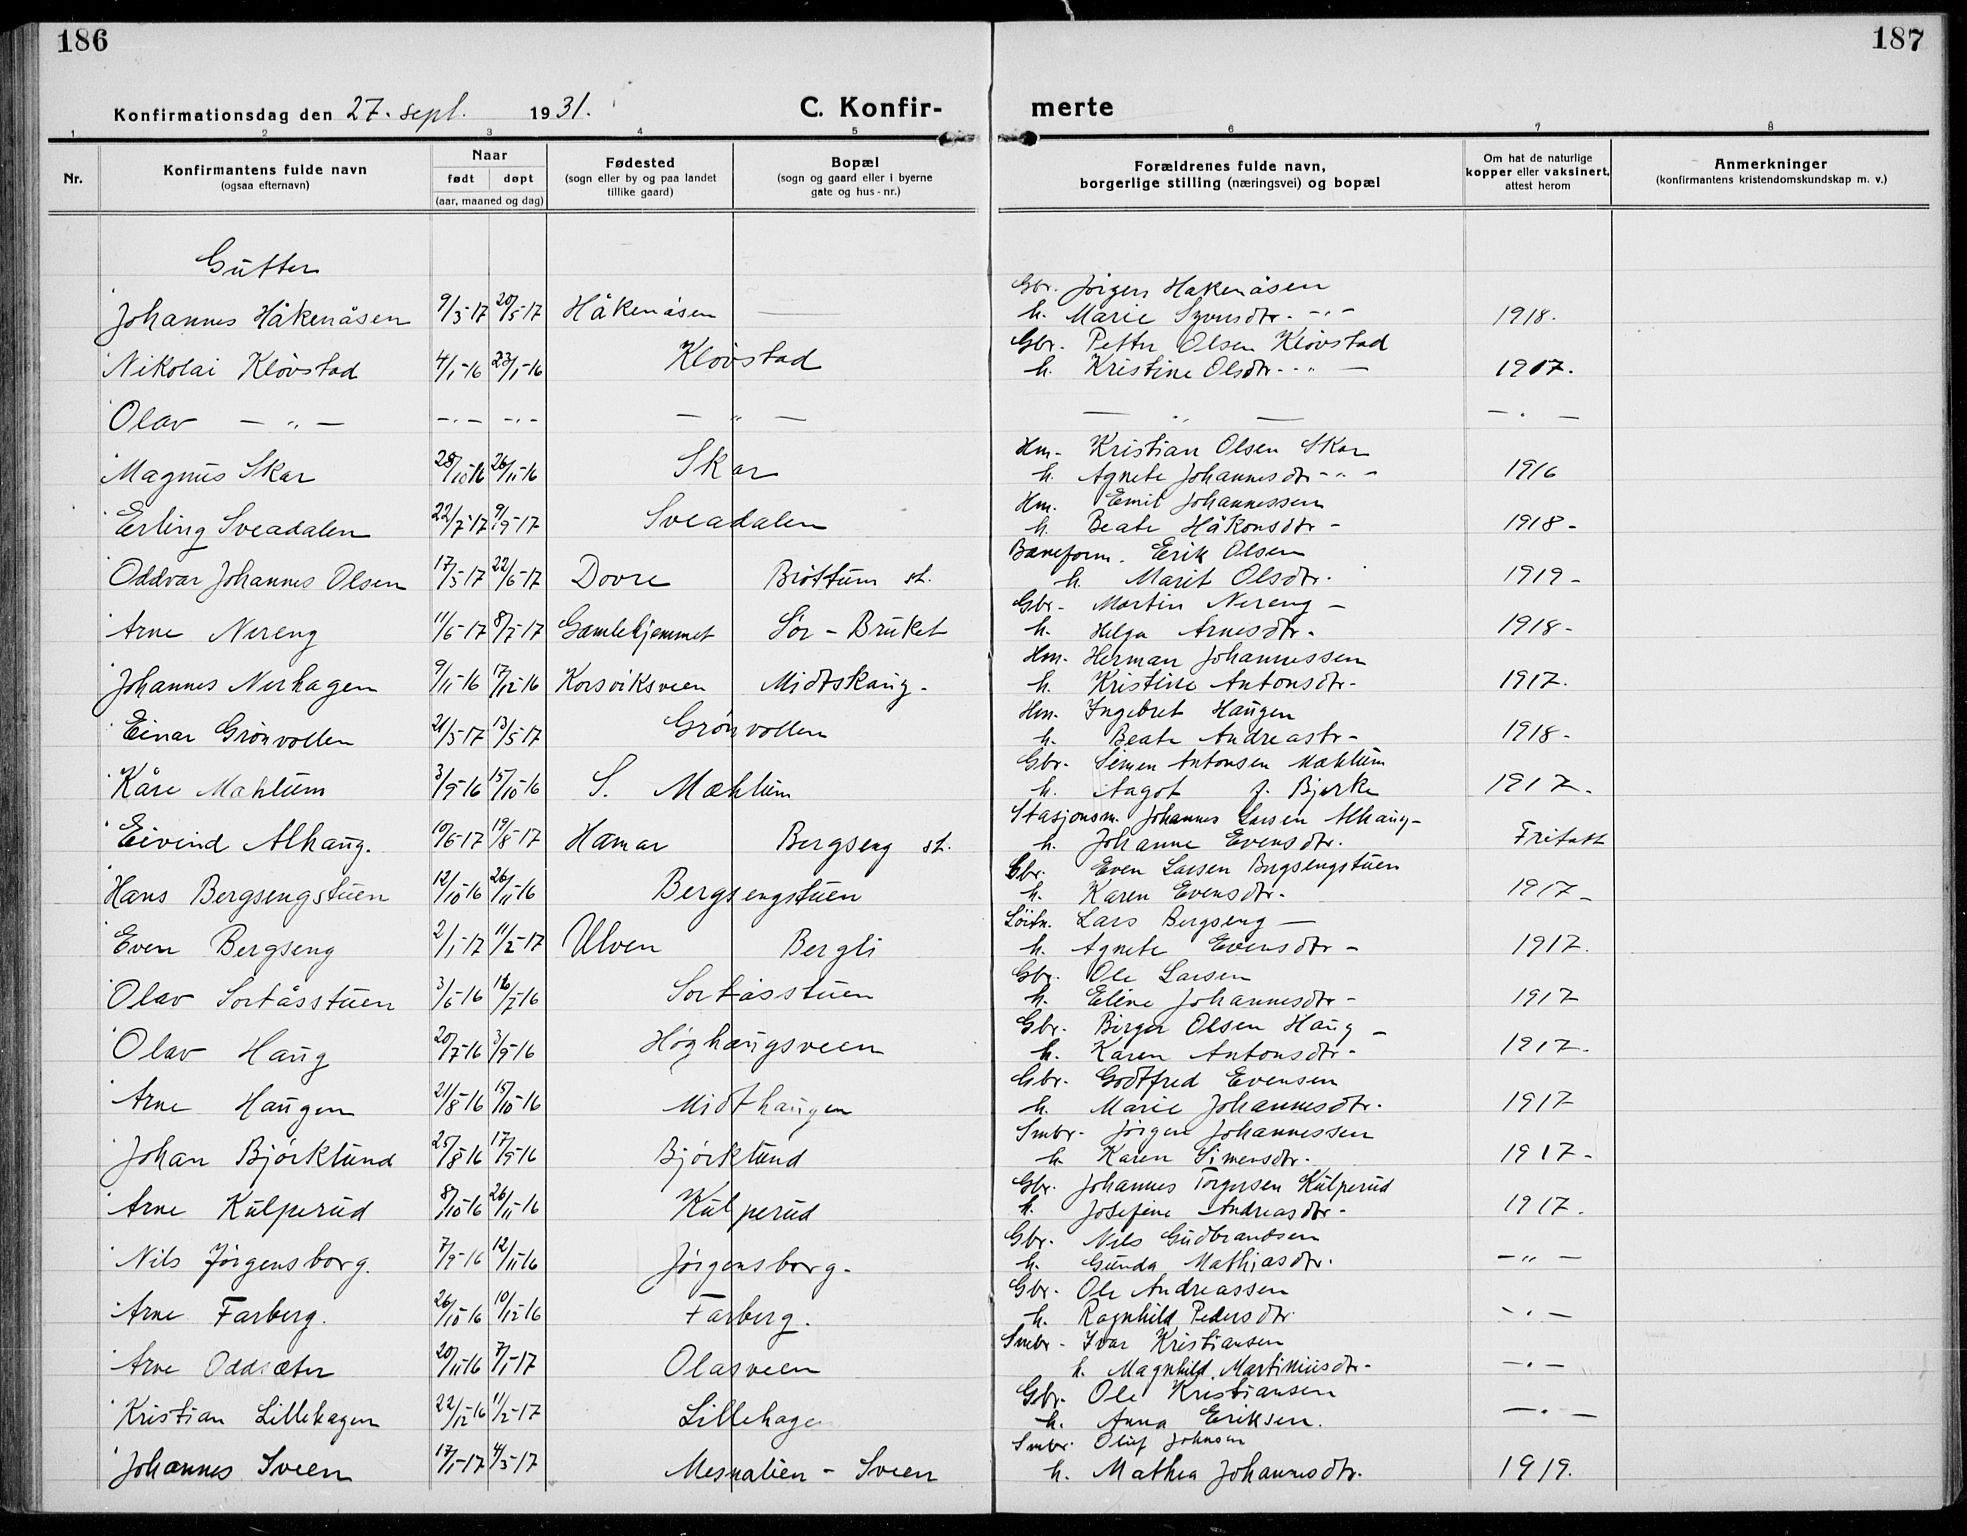 186
187
Konfirmationsdag den 27. sept. 1931.
C. Konfir-
merte
1 2 3 4 5 6 7 8
Nr.
Konfirmantens fulde navn
(ogsaa efternavn)
Naar
født døpt
(aar, maaned og dag)
Fødested
(sogn eller by og paa landet
tillike gaard)
Bopæl
(sogn og gaard eller i byerne
gate og hus-nr.)
Forældrenes fulde navn,
borgerlige stilling (næringsvei) og bopæl
Om hat de naturlige
kopper eller vaksinert,
attest herom
Anmerkninger
(konfirmantens kristendomskundskap m. v.)
Gutter
Gbr. Jørgen Håkenåsen
Johannes Håkenåsen 9/3-17 20/5-17 Håkenåsen — h. Marie Syversdtr. -"- 1918.
Gbr. Petter Olsen Kløvstad
Nikolai Kløvstad 4/1-16 23/1-16 Kløvstad h. Kristine Olsdtr. -"- 1917.
Olav — " — -"- -"- — " — — " — — " —
Hm. Kristian Olsen Skar
Magnus Skar 28/10-16 26/11-16 Skar h. Agnete Johannesdtr -"- 1916
Hm. Emil Johannessen
Erling Sveadalen 22/7-17 9/9-17 Sveadalen h. Beate Håkonsdtr - 1918-
Baneform. Erik Olsen
Oddvar Johannes Olsen 17/5-17 22/6-17 Dovre Brøttum st. h. Marit Olsdtr. 1919-
Gbr. Martin Nereng -
Arne Nereng 11/6-17 8/7-17 Gamlehjemmet Sør-Bruket h. Helga Arnesdtr. 1918-
Hm. Herman Johannessen
Johannes Nerhagen 9/11-16 17/12-16 Korsviksveen Midtskaug. h. Kristine Antonsdtr- 1917.
Hm. Ingebret Haugen
Einar Grønvollen 21/3-17 13/5-17 Grønvollen h. Beate Andreastr- 1918-
Gbr. Simen Antonsen Mæhlum
Kåre Mæhlum 3/9-16 15/10-16 S. Mæhlum h. Aagot f. Bjerke 1917.
Stasjonsm. Johannes Larsen Alhaug-
Eivind Alhaug. 10/6-17 19/8-17 Hamar Bergseng st. h. Johanne Evensdtr. Fritatt
Gbr. Even Larsen Bergsengstuen
Hans Bergsengstuen 12/10-16 26/11-16 Bergsengstuen h. Karen Evensdtr. 1917-
Løitn. Lars Bergseng —
Even Bergseng 2/1-17 11/2-17 Ulven Bergli h. Agnete Evensdtr - 1917.
Gbr. Ole Larsen
Olav Sortåsstuen 3/6-16 16/7-16 Sortåsstuen h. Eline Johannesdtr - 1917
Gbr. Birger Olsen Haug -
Olav Haug 20/7-16 3/9-16 Høghaugsveen h. Karen Antonsdtr- 1917.
Gbr. Godtfred Evensen
Arne Haugen 21/8-16 15/10-16 Midthaugen h. Marie Johannesdtr. 1917
Smbr. Jørgen Johannessen
Johan Bjørklund 25/8-16 17/9-16 Bjørklund h. Karen Simensdtr. 1917-
Gbr. Johannes Torgersen Kulperud
Arne Kulperud 8/10-16 26/11-16 Kulperud h. Josefine Andreasdtr- 1917.
Gbr. Nils Gudbrandsen
Nils Jørgensborg. 7/9-16 12/11-16 Jørgensborg. h. Gunda Mathiasdtr. -"-
Gbr. Ole Andreassen
Arne Farberg. 26/10-16 10/12-16 Farberg. h. Ragnhild Pedersdtr. -"-
Smbr - Ivar Kristiansen
Arne Oddsæter 20/11-16 7/1-17 Olasveen h. Magnhild Martiniusdtr- -"-
Gbr. Ole Kristiansen
Kristian Lillehagen 22/12-16 11/2-17 Lillehagen h. Anna Eriksen. -"-
Smbr. Oluf Johnsen
Johannes Sveen 17/1-17 4/3-17 Mesnalien - Sveen h. Mathea Johannesdtr. 1919.